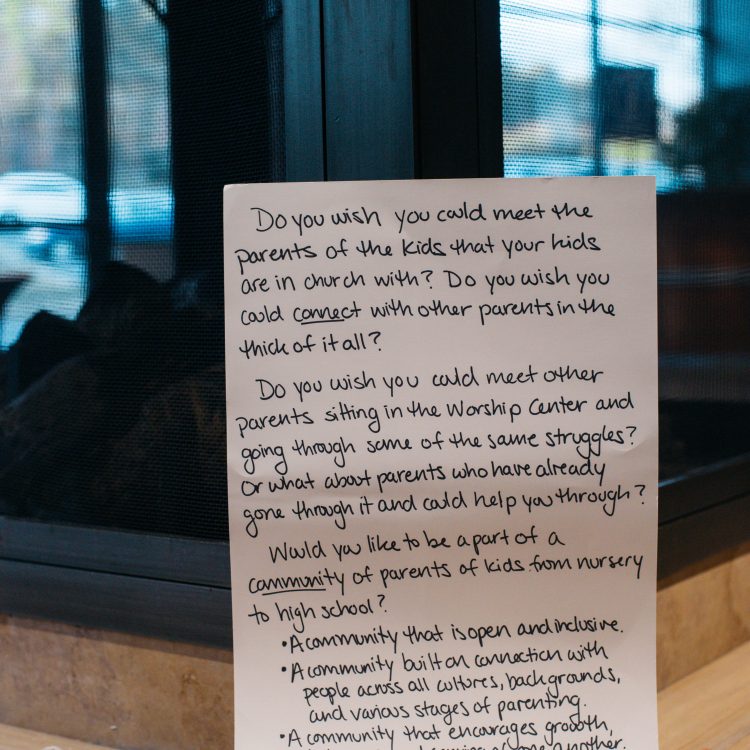 Do you wish you could meet the
parents of the kids that your kids
are in church with? Do you wish you
could connect with other parents in the
thick of it all?
Do you wish you could meet other
parents sitting in the Worship Center and
going through some of the same struggles?
Or what about parents who have already
gone through it and could help you through?
Would you like to be a part of a
community of parents of kids from nursery
to high school?
• A community that is open and inclusive.
• A community built on connection with
people across all cultures, backgrounds,
and various stages of parenting.
• A community that encourages growth,
another.